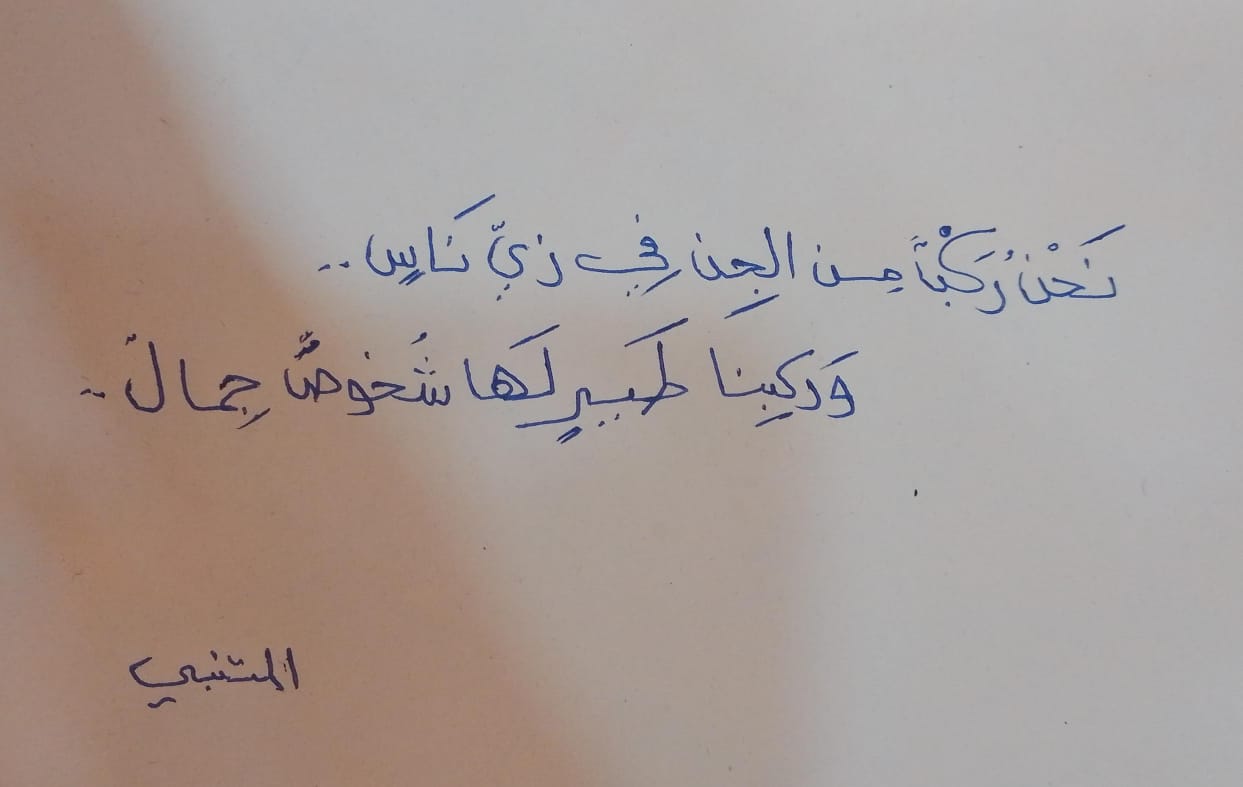 نَحْنُ رَكْبٌ مِن الجِن فِي زيِّ نَاسٍ..
وَركِبنَا طَيرٍ لَها شُخوصٌ جِمال..
المتنبي